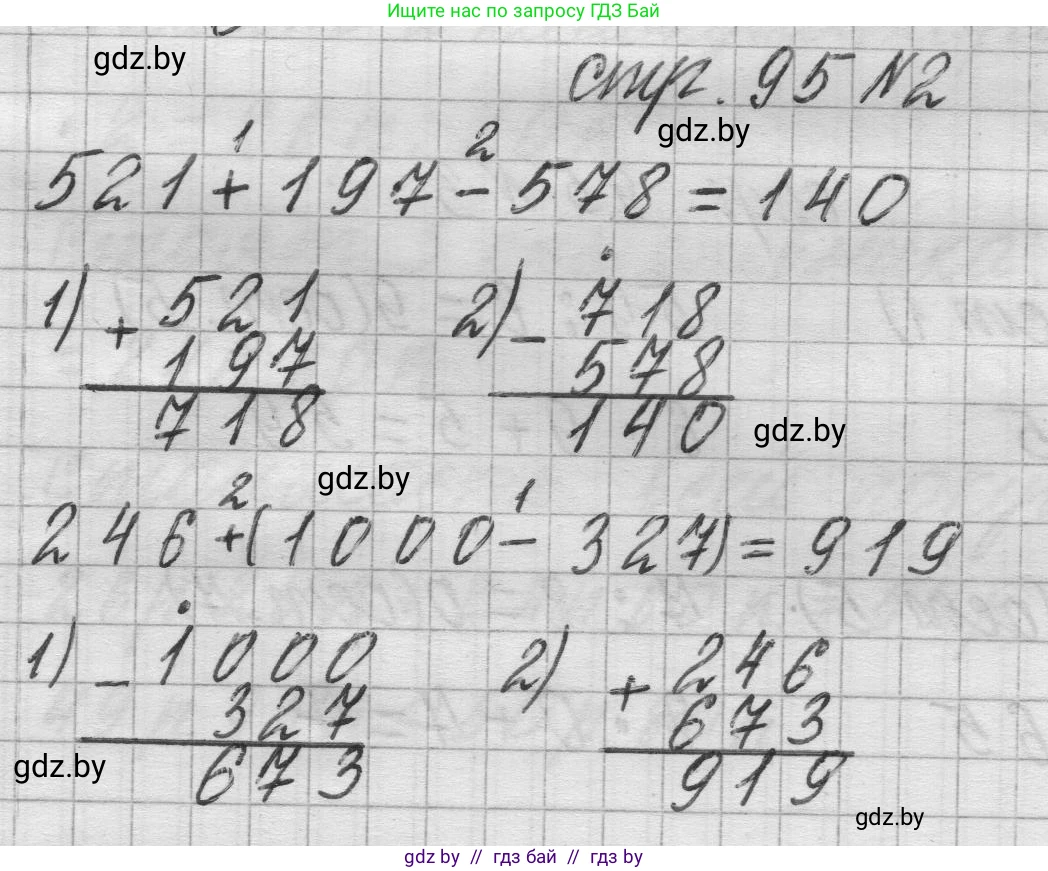 Ищите нас по запросу ГДЗ Бай
gdz.by
стр. 95 №2
gdz.by
1 2
521 + 197 - 578 = 140
1) + 521 2) - 718
197 578
718 140
gdz.by
gdz.by
2 1
246 + (1000 - 327) = 919
1) - 1000 2) + 246
327 673
673 919
gdz.by
gdz.by
gdz by // гдз бай // гдз by